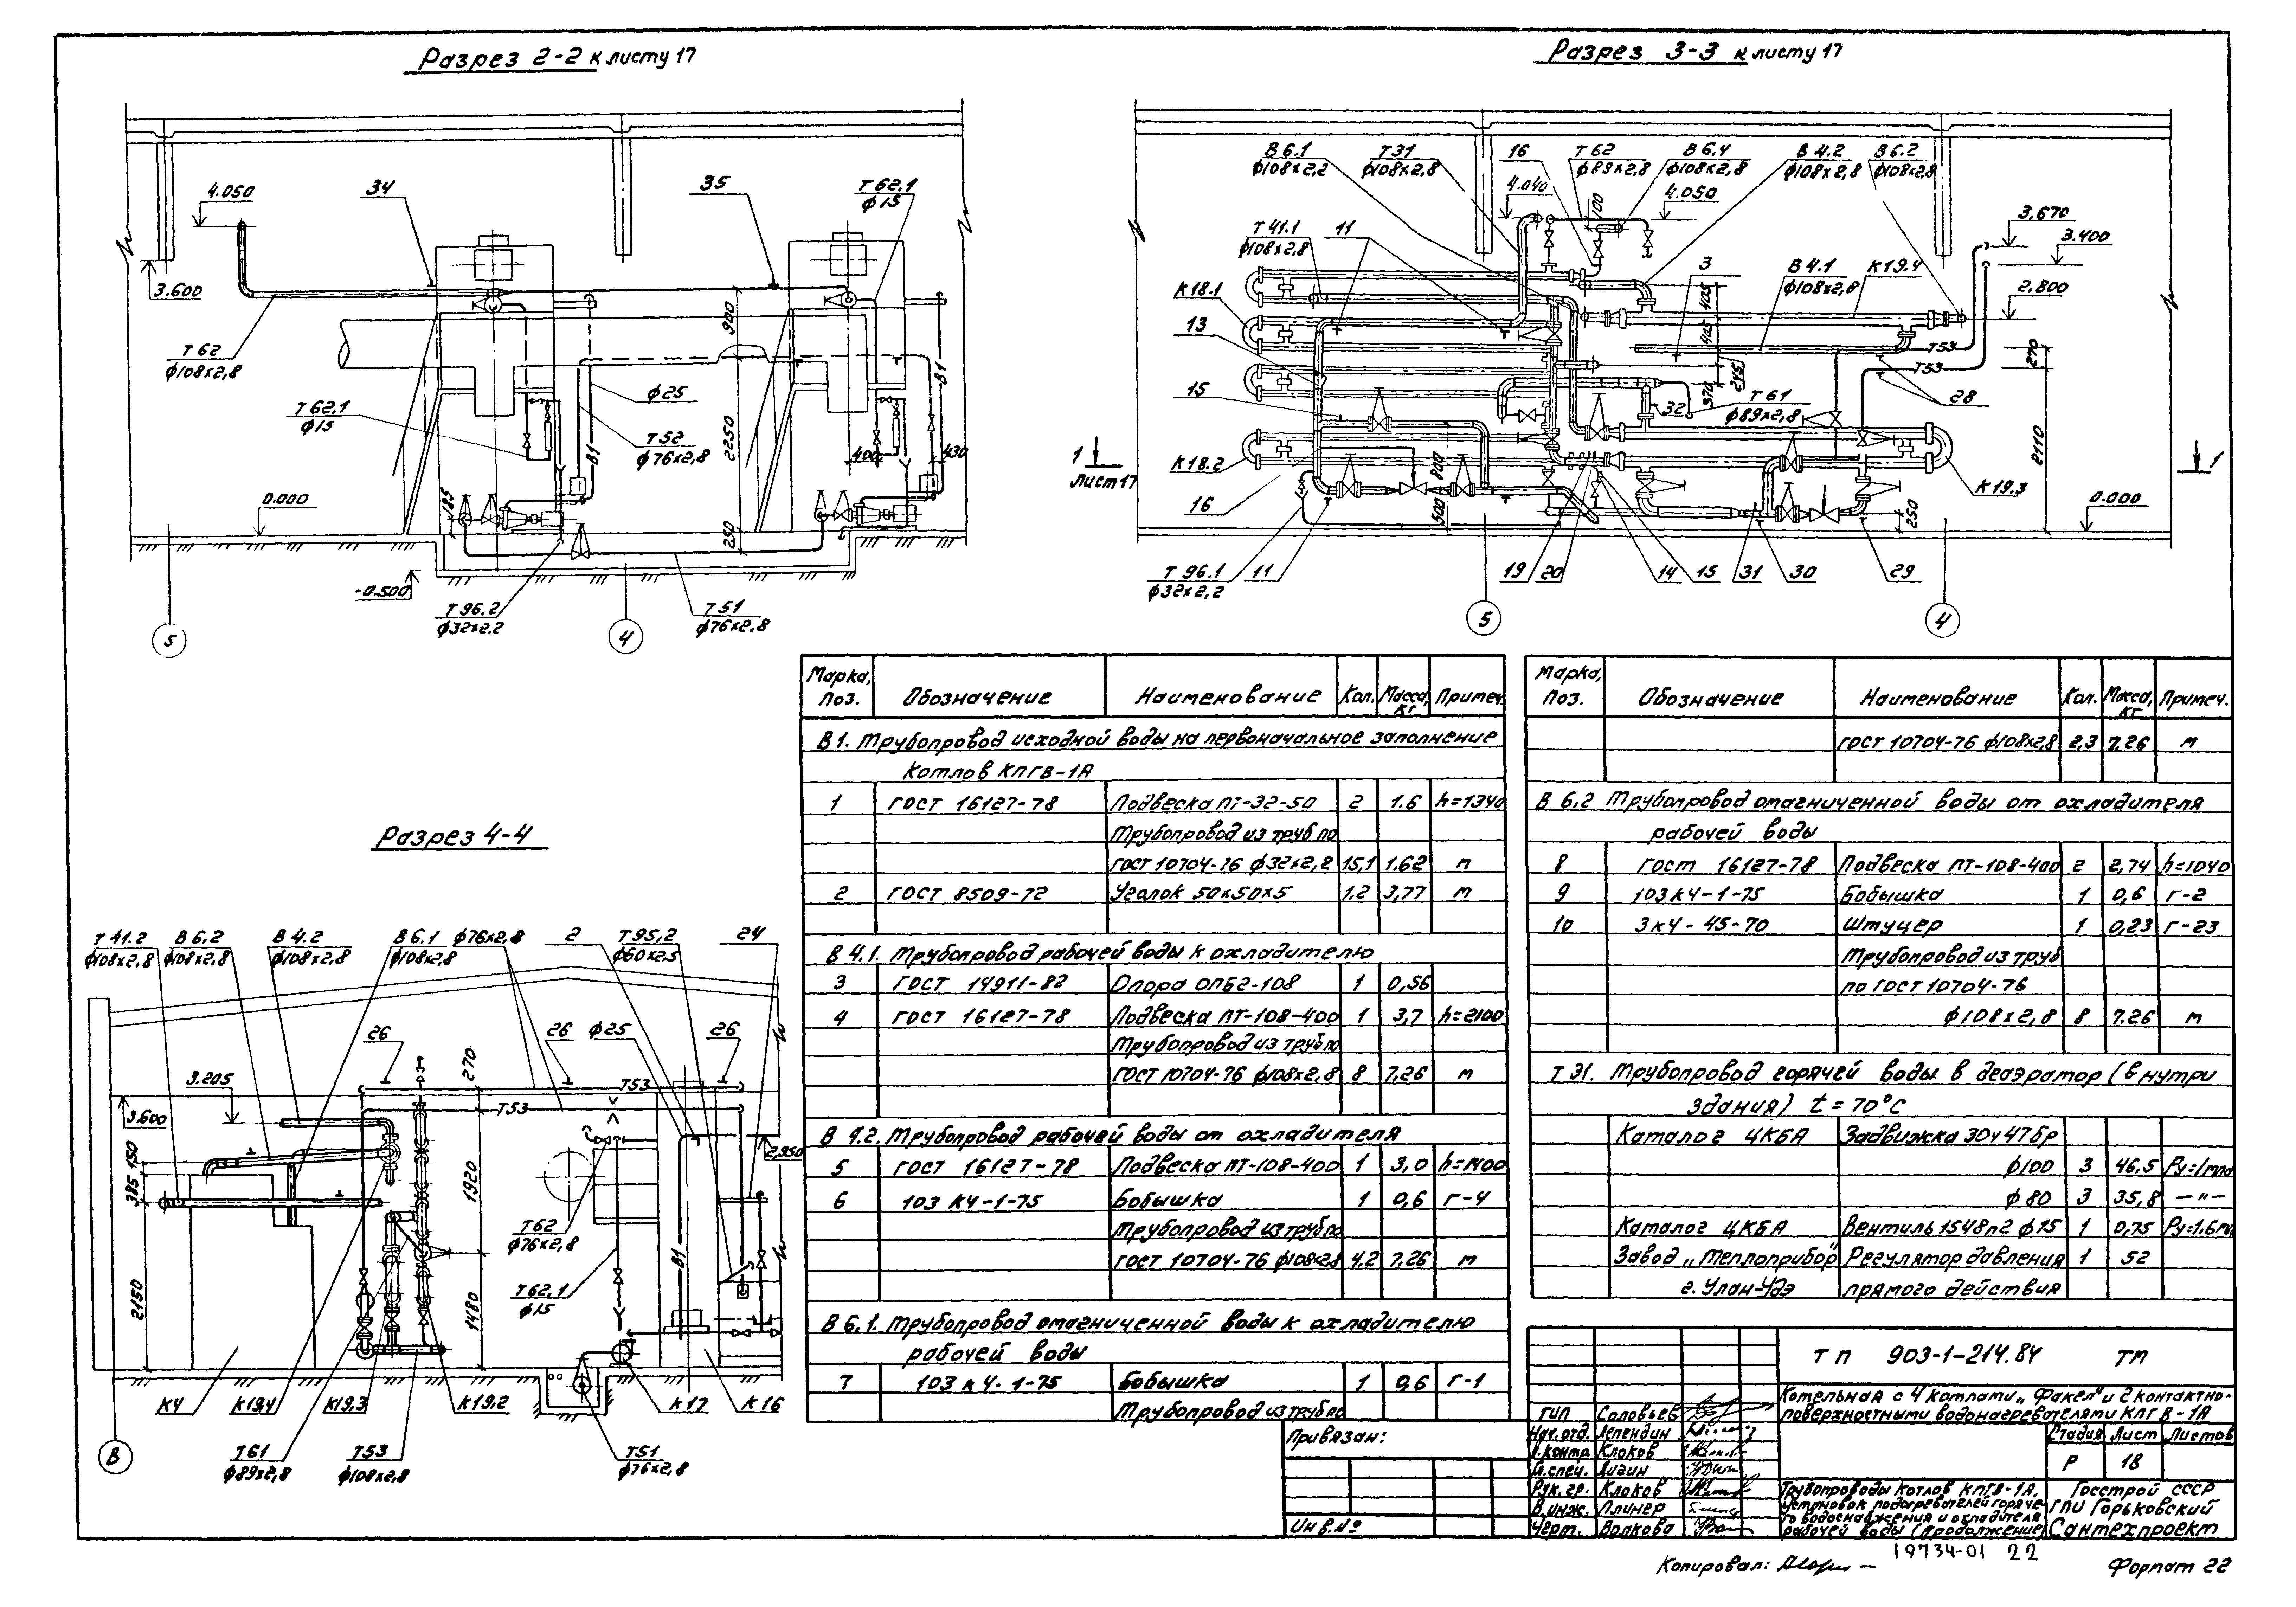 Разрез 2-2 к листу 17
4.050
34
35
Т 62.1
ф15
3.600
Т 62
ф108×2,8
Т 62.1
ф15
ф25
Т 52
ф76×2,8
В1
В1
900
2250
250
185
400
430
0.000
-0.500
Т 96.2
ф32×2,2
Т 51
ф76×2,8
5
4
Разрез 3-3 к листу 17
В 6.1
ф108×2,2
Т 31
ф108×2,8
16
Т 62
ф89×2,8
В 6.4
ф108×2,8
В 4.2
ф108×2,8
В 6.2
ф108×2,8
4.040
100
4.050
3,670
3.400
Т 41.1
ф108×2,8
11
3
В 4.1
ф108×2,8
К 19.4
2,800
К 18.1
405
405
13
Т53
Т53
270
245
370
15
32
Т 61
ф89×2,8
28
К 18.2
1
Лист 17
2110
1
16
800
500
К 19.3
0.000
250
Т 96.1
ф32×2,2
11
19
20
14
15
31
30
29
5
4
Разрез 4-4
Т 41.2
ф108×2,8
В 6.2
ф108×2,8
В 4.2
ф108×2,8
В 6.1
ф108×2,8
ф76×2,8
2
Т 95,2
ф60×2,5
24
26
270
26
ф25
26
3.205
Т53
Т53
3.600
2,950
150
385
1920
2150
1480
Т62
ф76×2,8
Т 62,1
ф15
В1
К4
К19,4
К19,3
К 19,2
К 17
К 16
Т 61
ф89×2,8
Т53
ф108×2,8
Т51
ф76×2,8
В
Марка, поз. Обозначение Наименование Кол. Масса, кг Примеч.
В 1. Трубопровод исходной воды на первоначальное заполнение
котлов КПГВ-1А
1 ГОСТ 16127-78 Подвеска ПТ-32-50 2 1.6 h=1340
Трубопровод из труб по
ГОСТ 10704-76 ф32×2,2 15,1 1.62 м
2 ГОСТ 8509-72 Уголок 50×50×5 1,2 3,77 м
В 4.1. Трубопровод рабочей воды к охладителю
3 ГОСТ 14911-82 Опора ОПБ2-108 1 0,56
4 ГОСТ 16127-78 Подвеска ПТ-108-400 1 3,7 h=2100
Трубопровод из труб по
ГОСТ 10704-76 ф108×2,8 8 7,26 м
В 4.2. Трубопровод рабочей воды от охладителя
5 ГОСТ 16127-78 Подвеска ПТ-108-400 1 3,0 h=1400
6 103 К4-1-75 Бобышка 1 0,6 г-4
Трубопровод из труб по
ГОСТ 10704-76 ф108×2,8 4,2 7.26 м
В 6.1. Трубопровод омагниченной воды к охладителю
рабочей воды
7 103 К4-1-75 Бобышка 1 0,6 г-1
Трубопровод из труб по
Марка, поз. Обозначение Наименование Кол. Масса, кг Примеч.
ГОСТ 10704-76 ф108×2,8 2,3 7.26 м
В 6.2 Трубопровод омагниченной воды от охладителя
рабочей воды
8 ГОСТ 16127-78 Подвеска ПТ-108-400 2 2,74 h=1040
9 103К4-1-75 Бобышка 1 0,6 г-2
10 3К4-45-70 Штуцер 1 0,23 г-23
Трубопровод из труб
по ГОСТ 10704-76
ф108×2,8 8 7.26 м
Т 31. Трубопровод горячей воды в деаэратор (внутри
здания) t=70°С
Каталог ЦКБА Задвижка 30ч47бр
ф100 3 46,5 Ру=1мпа
ф80 3 35,8 —"—
Каталог ЦКБА Вентиль 15ч8п2 ф15 1 0,75 Ру=1.6м
Завод „Теплоприбор" Регулятор давления 1 52
г. Улан-Удэ прямого действия
Т П 903-1-214.84 ТМ
Котельная с 4 котлами „Факел" и 2 контактно-
поверхностными водонагревателями КПГВ-1А
ГИП Соловьев
Нач. отд. Лепендин
Н.контр Клоков
Гл.спец. Лигин
Рук. гр. Клоков
В.инж. Плинер
Черт. Волкова
Стадия Лист Листов
Р 18
Трубопроводы котлов КПГВ-1А,
установок подогревателей горяче-
го водоснабжения и охладителя
рабочей воды (продолжение)
Госстрой СССР
ГПИ Горьковский
Сантехпроект
Привязан:
Инв.№
19734-01 22
Копировал:
Формат 22